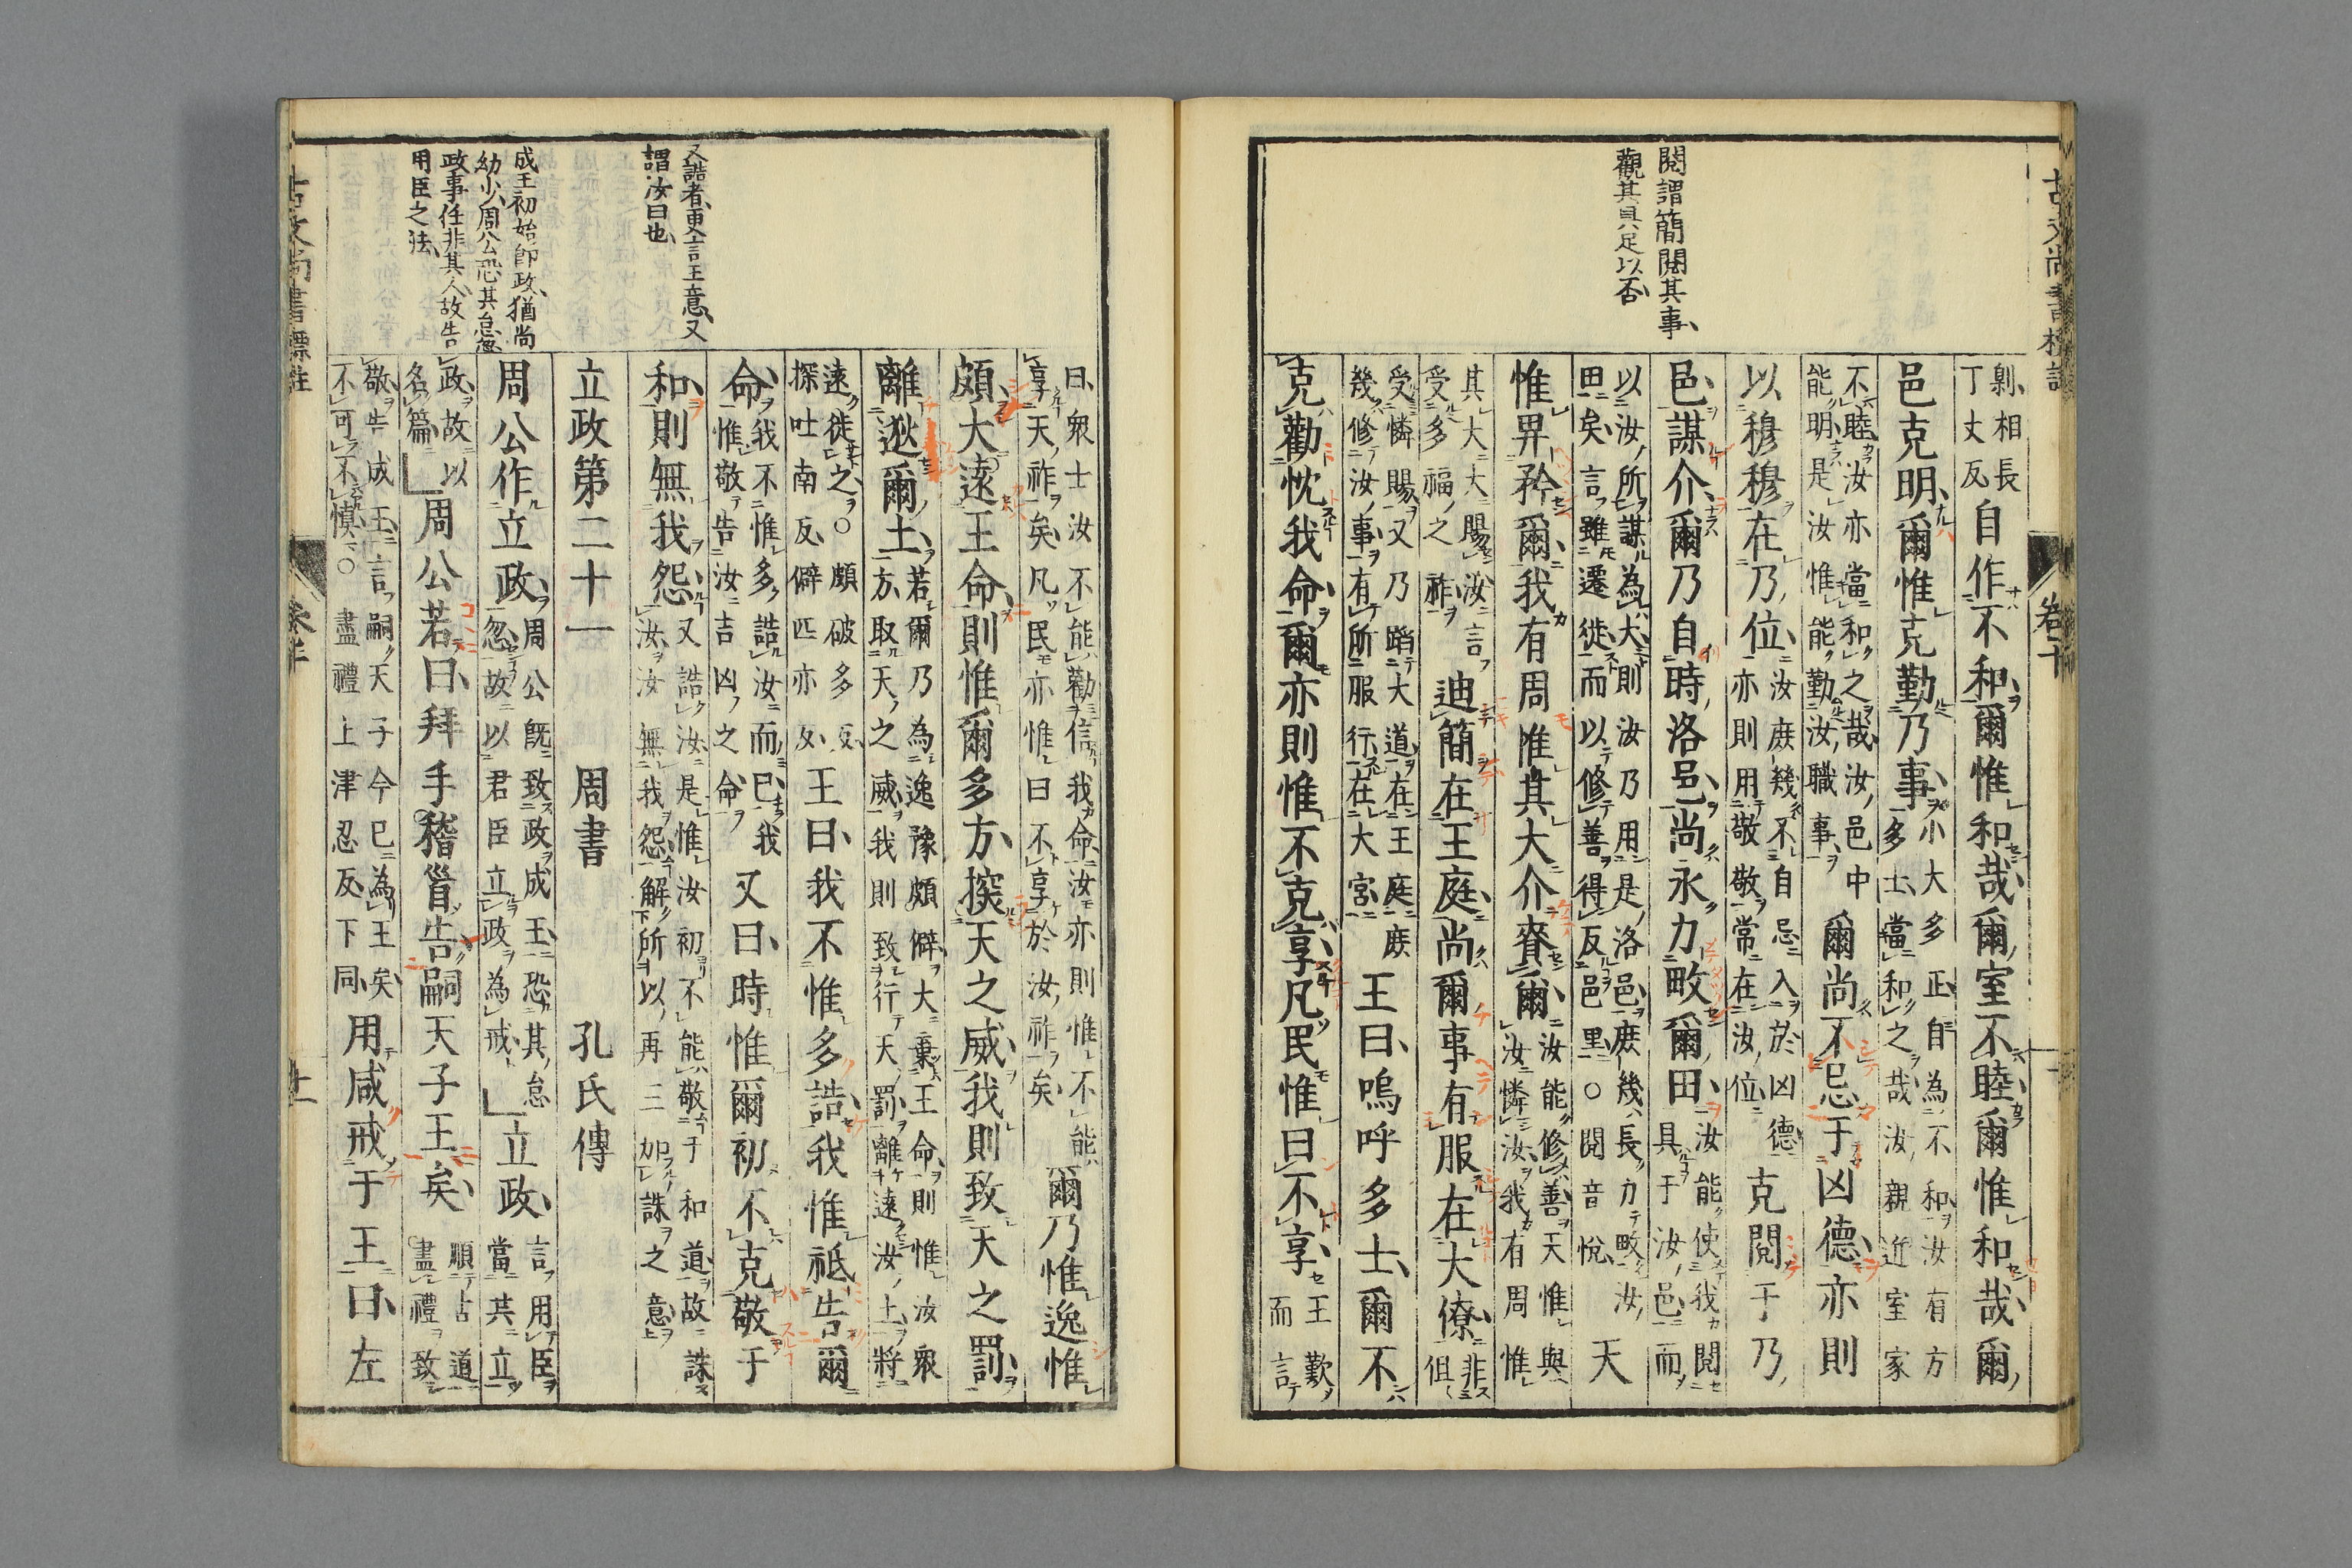 古文尚書標註
卷十
閲謂簡閲其事
觀其具足以否
剝相長丁丈反自作不和爾惟和哉爾室不睦爾惟和哉爾
邑克明爾惟克勤乃事小大多正自為不和汝有方多士當和之哉汝親近室家
不睦汝亦當和之哉汝邑中能明是汝惟能勤汝職事爾尚不忌于凶德亦則
以穆穆在乃位汝庶幾不自忌入於凶德亦則用敬敬常在汝位克閱于乃
邑謀介爾乃自時洛邑尚永力畋爾田汝能使我閱具于汝邑而
以汝所謀為大則汝乃用是洛邑庶幾長力畋汝田矣言雖遷徙而以修善得反邑里○閱音悅天
惟畀矜爾我有周惟其大介賚爾汝能修善天惟與汝憐汝我有周惟
其大大賜汝言受多福之祚迪簡在王庭尚爾事有服在大僚非但
受憐賜又乃蹈大道在王庭庶幾修汝事有所服行在大官王曰嗚呼多士爾不
克勸忱我命爾亦則惟不克享凡民惟曰不享王歎而言
又誥者更言王意又
謂汝曰也
成王初始即政猶尚
幼少周公恐其怠忽
政事任非其人故告
用臣之法
曰衆士汝不能勸信我命汝亦則惟不能享天祚矣凡民亦惟曰不享於汝祚矣爾乃惟逸惟
頗大遠王命則惟爾多方探天之威我則致天之罰
離逖爾土若爾乃為逸豫頗僻大棄王命則惟汝衆方取天之威我則致行天罰離遠汝土將
遠徙之○頗破多反探吐南反僻匹亦反王曰我不惟多誥我惟祗告爾
命我不惟多誥汝而已我惟敬告汝吉凶之命又曰時惟爾初不克敬于
和則無我怨又誥汝是惟汝初不能敬于和道故誅汝汝無我怨解所以再三加誅之意
立政第二十一　周書　孔氏傳
周公作立政周公既致政成王恐其怠忽故以君臣立政為戒立政言用臣當共立
政故以名篇周公若曰拜手稽首告嗣天子王矣順古道盡禮致
敬告成王言嗣天子今已為王矣不可不慎○盡禮上津忍反下同用咸戒于王曰左
古文尚書標註
卷十
十一